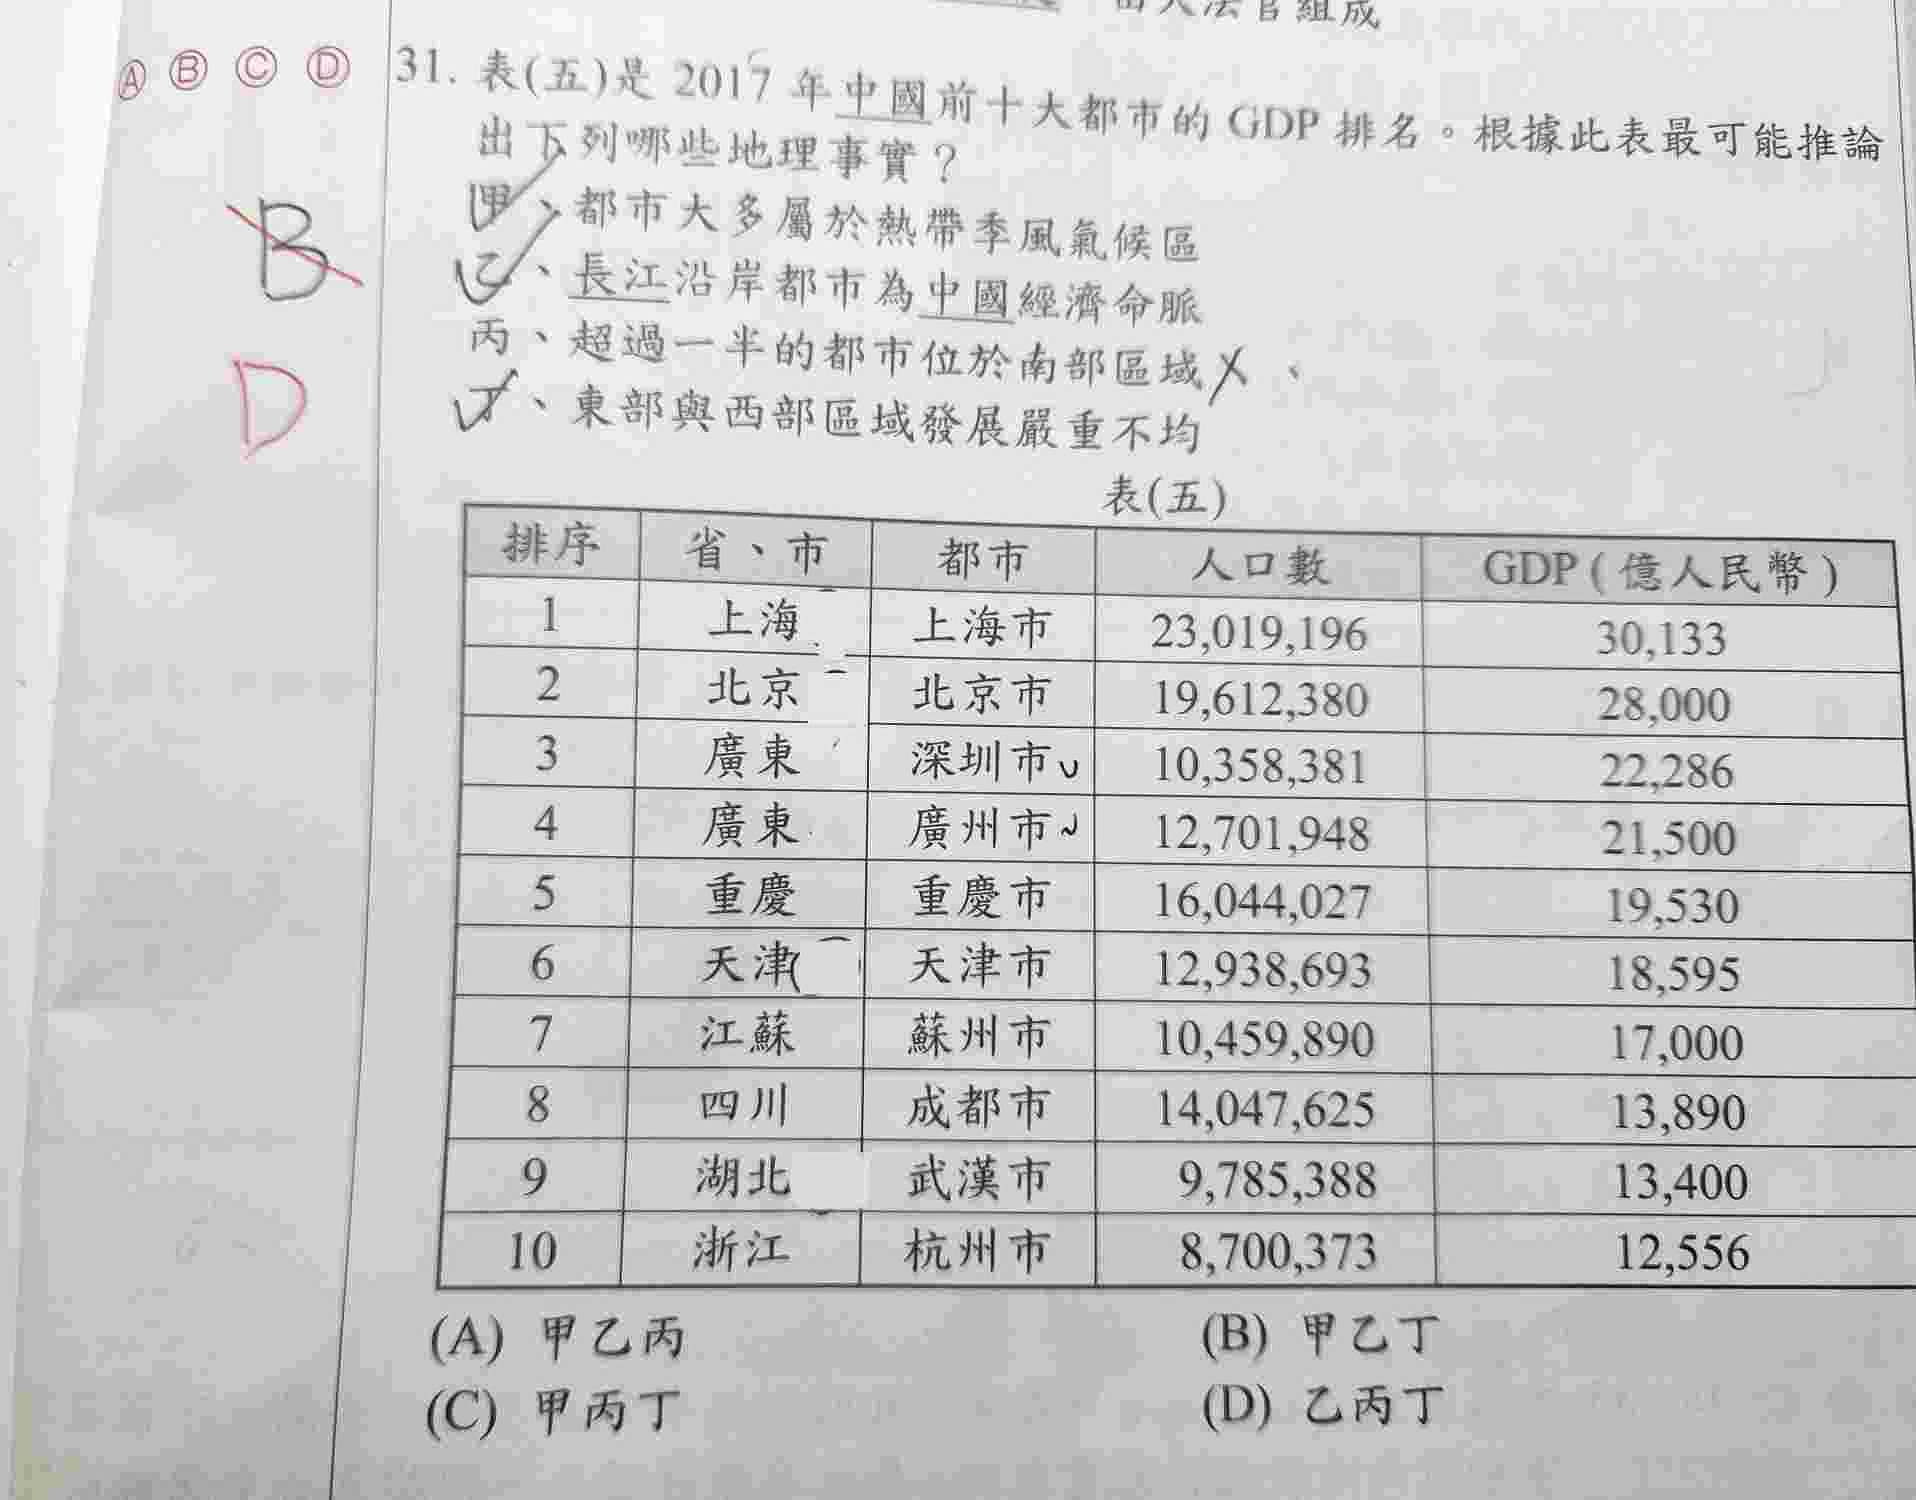 由大法官組成
Ⓐ Ⓑ Ⓒ Ⓓ
31. 表(五)是 2017 年中國前十大都市的 GDP 排名。根據此表最可能推論
出下列哪些地理事實?
甲、都市大多屬於熱帶季風氣候區
B
乙、長江沿岸都市為中國經濟命脈
丙、超過一半的都市位於南部區域
D
丁、東部與西部區域發展嚴重不均
表(五)
排序 省、市 都市 人口數 GDP(億人民幣)
1 上海 上海市 23,019,196 30,133
2 北京 北京市 19,612,380 28,000
3 廣東 深圳市 10,358,381 22,286
4 廣東 廣州市 12,701,948 21,500
5 重慶 重慶市 16,044,027 19,530
6 天津 天津市 12,938,693 18,595
7 江蘇 蘇州市 10,459,890 17,000
8 四川 成都市 14,047,625 13,890
9 湖北 武漢市 9,785,388 13,400
10 浙江 杭州市 8,700,373 12,556
(A) 甲乙丙 (B) 甲乙丁
(C) 甲丙丁 (D) 乙丙丁